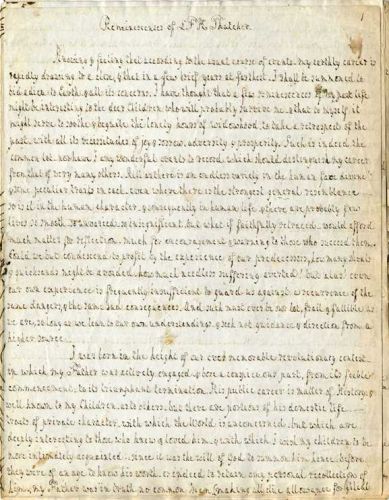 1
Reminiscences of L F K Thatcher.
Knowing & feeling that according to the usual course of events, my earthly career is
rapidly drawing to a close, & that in a few brief years at farthest, I shall be summoned to
bid adieu to Earth & all its concerns, I have thought that a few reminiscences of my past life
might be interesting to the dear Children who will probably survive me, & that to myself it
might serve to soothe & beguile the lonely hours of widowhood, to take a retrospect of the
past, with all its vicissitudes of joy & sorrow, adversity & prosperity. Such is indeed the
common lot, nor have I any wonderful events to record, which should distinguish my career
from that of very many others. Still as there is an endless variety in the human face divine
& some peculiar traits in each, even where there is the strongest general resemblance
so is it in the human character, & consequently in human life, & there are probably few
lives so smooth so unvaried, so insignificant, but what if faithfully retraced would afford
much matter for reflection, much for encouragement & warning to those who succeed them.
Could we but condescend to profit by the experience of our predecessors, how many shoals
& quicksands might be avoided, how much needless suffering averted! but alas! even
our own experience is frequently insufficient to guard us against a recurrence of the
same dangers, & the same sad consequences. And such must ever be our lot, frail & fallible as
we are, so long as we lean to our own understandings, & seek not guidance & direction from a
higher source.
I was born in the height of our ever memorable revolutionary contest
in which my Father was actively engaged & bore a conspicuous part, from its feeble
commencement, to its triumphant termination. His public career is matter of History, &
well known to my Children, as to others, but there are portions of his domestic life
traits of private character, with which the World is unconcerned, but which are
deeply interesting to those who knew & loved him, & with which I wish my children to be
more intimately acquainted, since it was the will of God to summon him hence, before
they were of an age to know his worth, or enabled to retain any personal recollections of
him. My Father was in truth no common Man, making all the allowance for filial